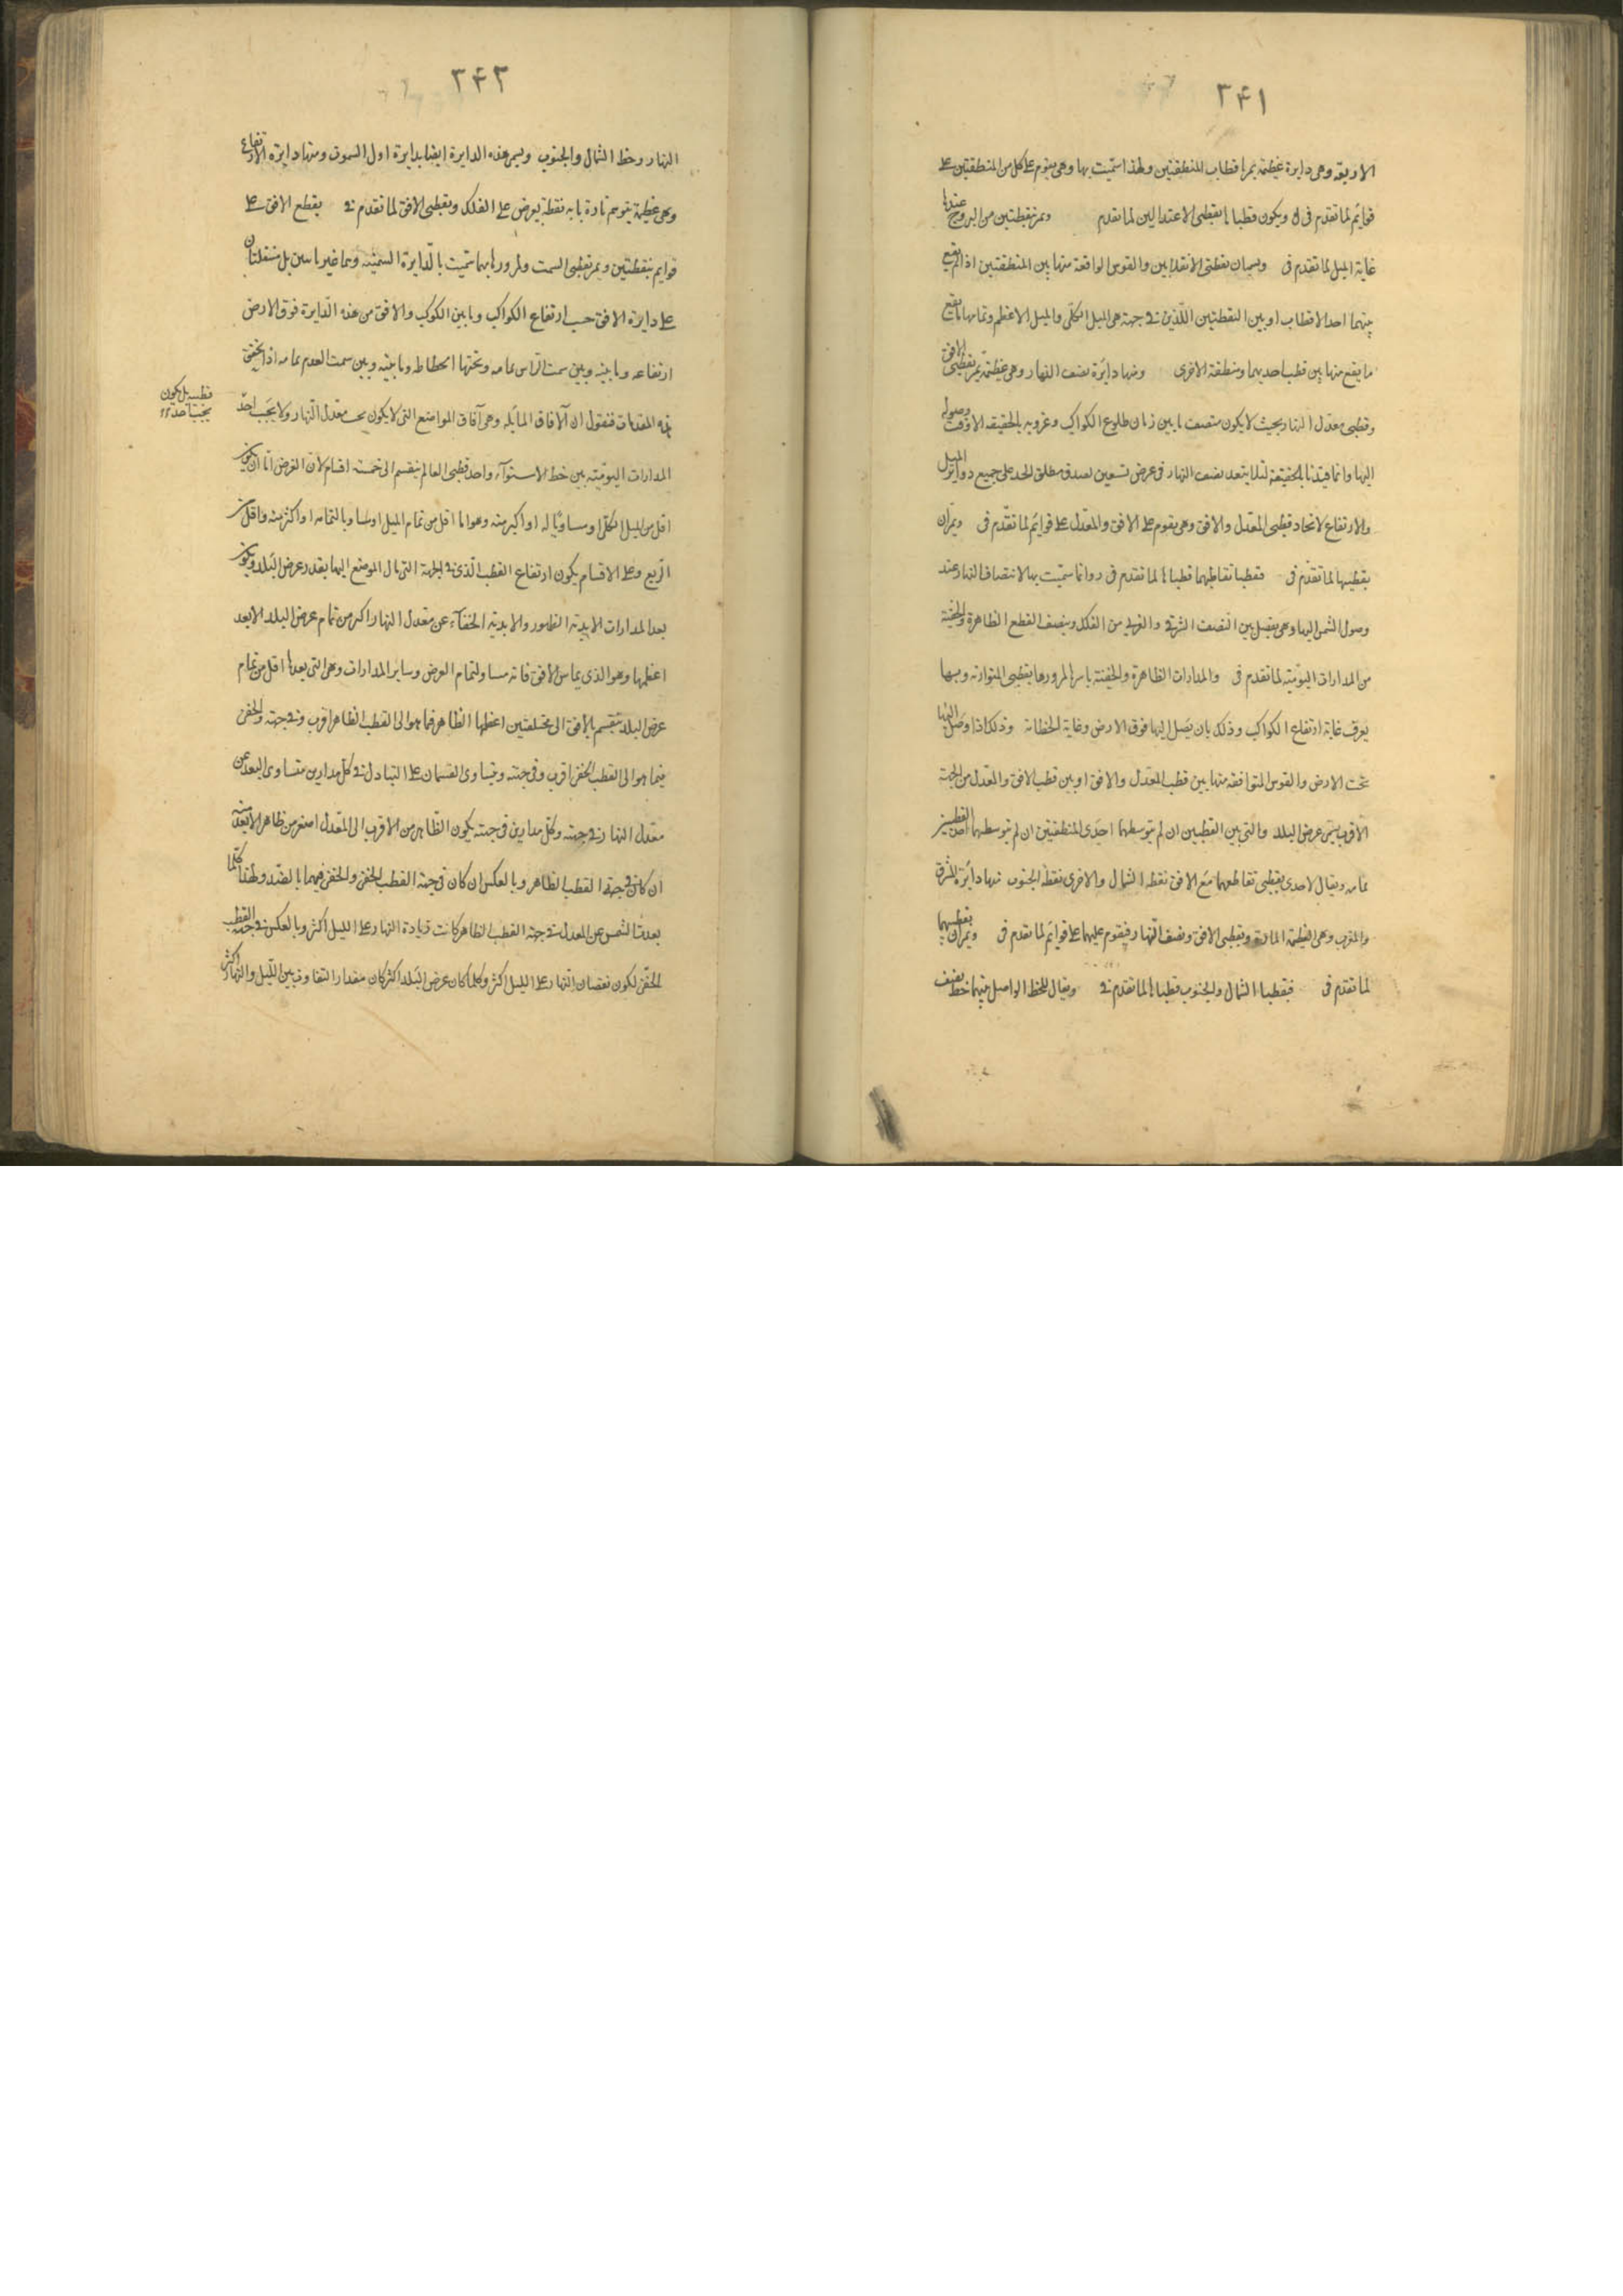 ٣۴١
الاربعة وهى دايرة عظيمة يمر باقطاب المنطقتين ولهذا سمّيت بها وهى يقوم على كل من المنطقتين على
قوائم لما تقدم فى ويكون قطباها نقطتى الاعتدالين لما تقدم ويمر بنقطتين من البروج عندها
غاية الميل لما تقدم فى ويسميان نقطتى الانقلابين والقوس الواقعة منها بين المنطقتين اذا لم يقع
بينهما احد الاقطاب او بين النقطتين اللّذين فى جهة هى الميل الكلّى والميل الاعظم وتمامها ما يقع
ما يقع منها بين قطب احديهما ومنطقة الاخرى ومنها دايرة نصف النهار وهى عظيمة يمرّ بقطبى الافق
وقطبى معدّل النهار بحيث لا يكون منتصف ما بين زمان طلوع الكواكب وغروبه بالحقيقه الا وقت وصوله
اليها وانما قيّدنا بالحقيقة لئلا يتعدد نصف النهار فى عرض تسعين لصدق مطلق الحد على جميع دواير الميل
والارتفاع لاتحاد قطبى المعدّل والافق وهى يقوم على الافق والمعدل على قوايم لما تقدّم فى ويمران
بقطبيها لما تقدّم فى فقطبا تقاطيهما قطباها لما تقدم فى وانما سمّيت بها لانتصاف النهار عند
وصول الشمس اليها وهى يفصل بين النصف الشرقى والغربى من الفلك وينصف القطع الظاهرة والخفية
من المدارات اليوميّة لما تقدم فى والمدارات الظاهرة والخفيّة باسرها لمرورها بقطبى المتوازنه وبها
يعرف غاية ارتفاع الكواكب وذلك بان يصل اليها فوق الارض وغاية انحطاطه وذلك اذا وصل اليها
تحت الارض والقوس المتوافقه منها بين قطب المعدّل والافق او بين قطب الافق والمعدل من الجهة
الاقرب يسمّى عرض البلد والتى بين القطبين ان لم يتوسطهما احدى المنطقتين ان لم يتوسطهما احد القطبين
تمامه ويقال لاحدى نقطتى تقاطعهما مع الافق نقطه الشمال والاخرى نقطة الجنوب منها دايرة المشرق
والمغرب وهى العظيمة المارة بقطبى الافق ونصف النّهار فيقوم عليهما على قوايم لما تقدم فى ويمران بقطبيهما
لما تقدّم فى فنقطتا الشمال والجنوب قطباها لما تقدم فى ويقال للخط الواصل بينهما خط نصف
٣۴٢
النهار وخط الشمال والجنوب ويسمى هذه الدايرة ايضا بدايرة اول السموت ومنها دايرة الارتفاع
وهى عظيمة يتوهم تارة بانه نقطة يعرض على الفلك وبقطبى الافق لما تقدم فى يقطع الافق على
قوايم بنقطتين ويمر بقطبى السمت ولمرورها بهما سمّيت بالدّايرة السمتيّه وهما غير ثابتين بل منتقلتان
على دايرة الافق حسب ارتفاع الكواكب وما بين الكوكب والافق من هذه الدّايرة فوق الارض
ارتفاعه وما بينه وبين سمت الرّاس تمامه وتحتها انحطاطه وما بينه وبين سمت القدم تمامه اذا تحقّق
هذه المقدمات فنقول ان الآفاق المايله وهى آفاق المواضع التى لا يكون تحت معدّل النّهار ولا يجب احد
المدارات اليوميّة بين خط الاستوآء واحد قطبى العالم ينقسم الى خمسة اقسام لان العرض امّا ان يكون
اقل من الميل الكلّى او مساويًا له او اكبر منه وهو اما اقل من تمام الميل او مساويا لتمامه او اكثر منه واقل من
الرّبع وعلى الاقسام يكون ارتفاع القطب الّذى فى الجهة التى مال الموضع اليها بقدر عرض البلد ويكون
بعد المدارات الابديّة الظهور والابديّة الخفآء عن معدل النهار اكبر من تمام عرض البلد الا بعد
اعظمها وهو الذى يماس الافق فانه مساو لتمام العرض وساير المدارات وهى التى بعدها اقل من تمام
عرض البلد ينقسم بالافق الى مختلفتين اعظمهما الظاهر فيما هو الى القطب الظاهر اقرب وفى جهته والخفى
فيما هو الى القطب الخفى اقرب وفى جهته ويتساوى القسمان على التبادل فى كل مدارين متساوى البعد عن
معدّل النهار فى جهته وكل مدارين فى جهته يكون الظّاهر من الاقرب الى المعدّل اصغر من ظاهر الابعد منه
ان كان فى جهة القطب الظاهر وبالعكس ان كان فى جهة القطب الخفى والخفى فيهما بالضدّ ولهذا كلّما
بعدت الشمس عن المعدل فى جهة القطب الظاهر كانت زيادة النهار على الليل اكثر وبالعكس فى جهة القطب
الخفّى لكون نقصان النّهار على الليل اكثر وكلما كان عرض البلد اكثر كان مقدار التفاوت بين اللّيل والنّهار اكثر
قطبيه بل يكون
بجنب احد